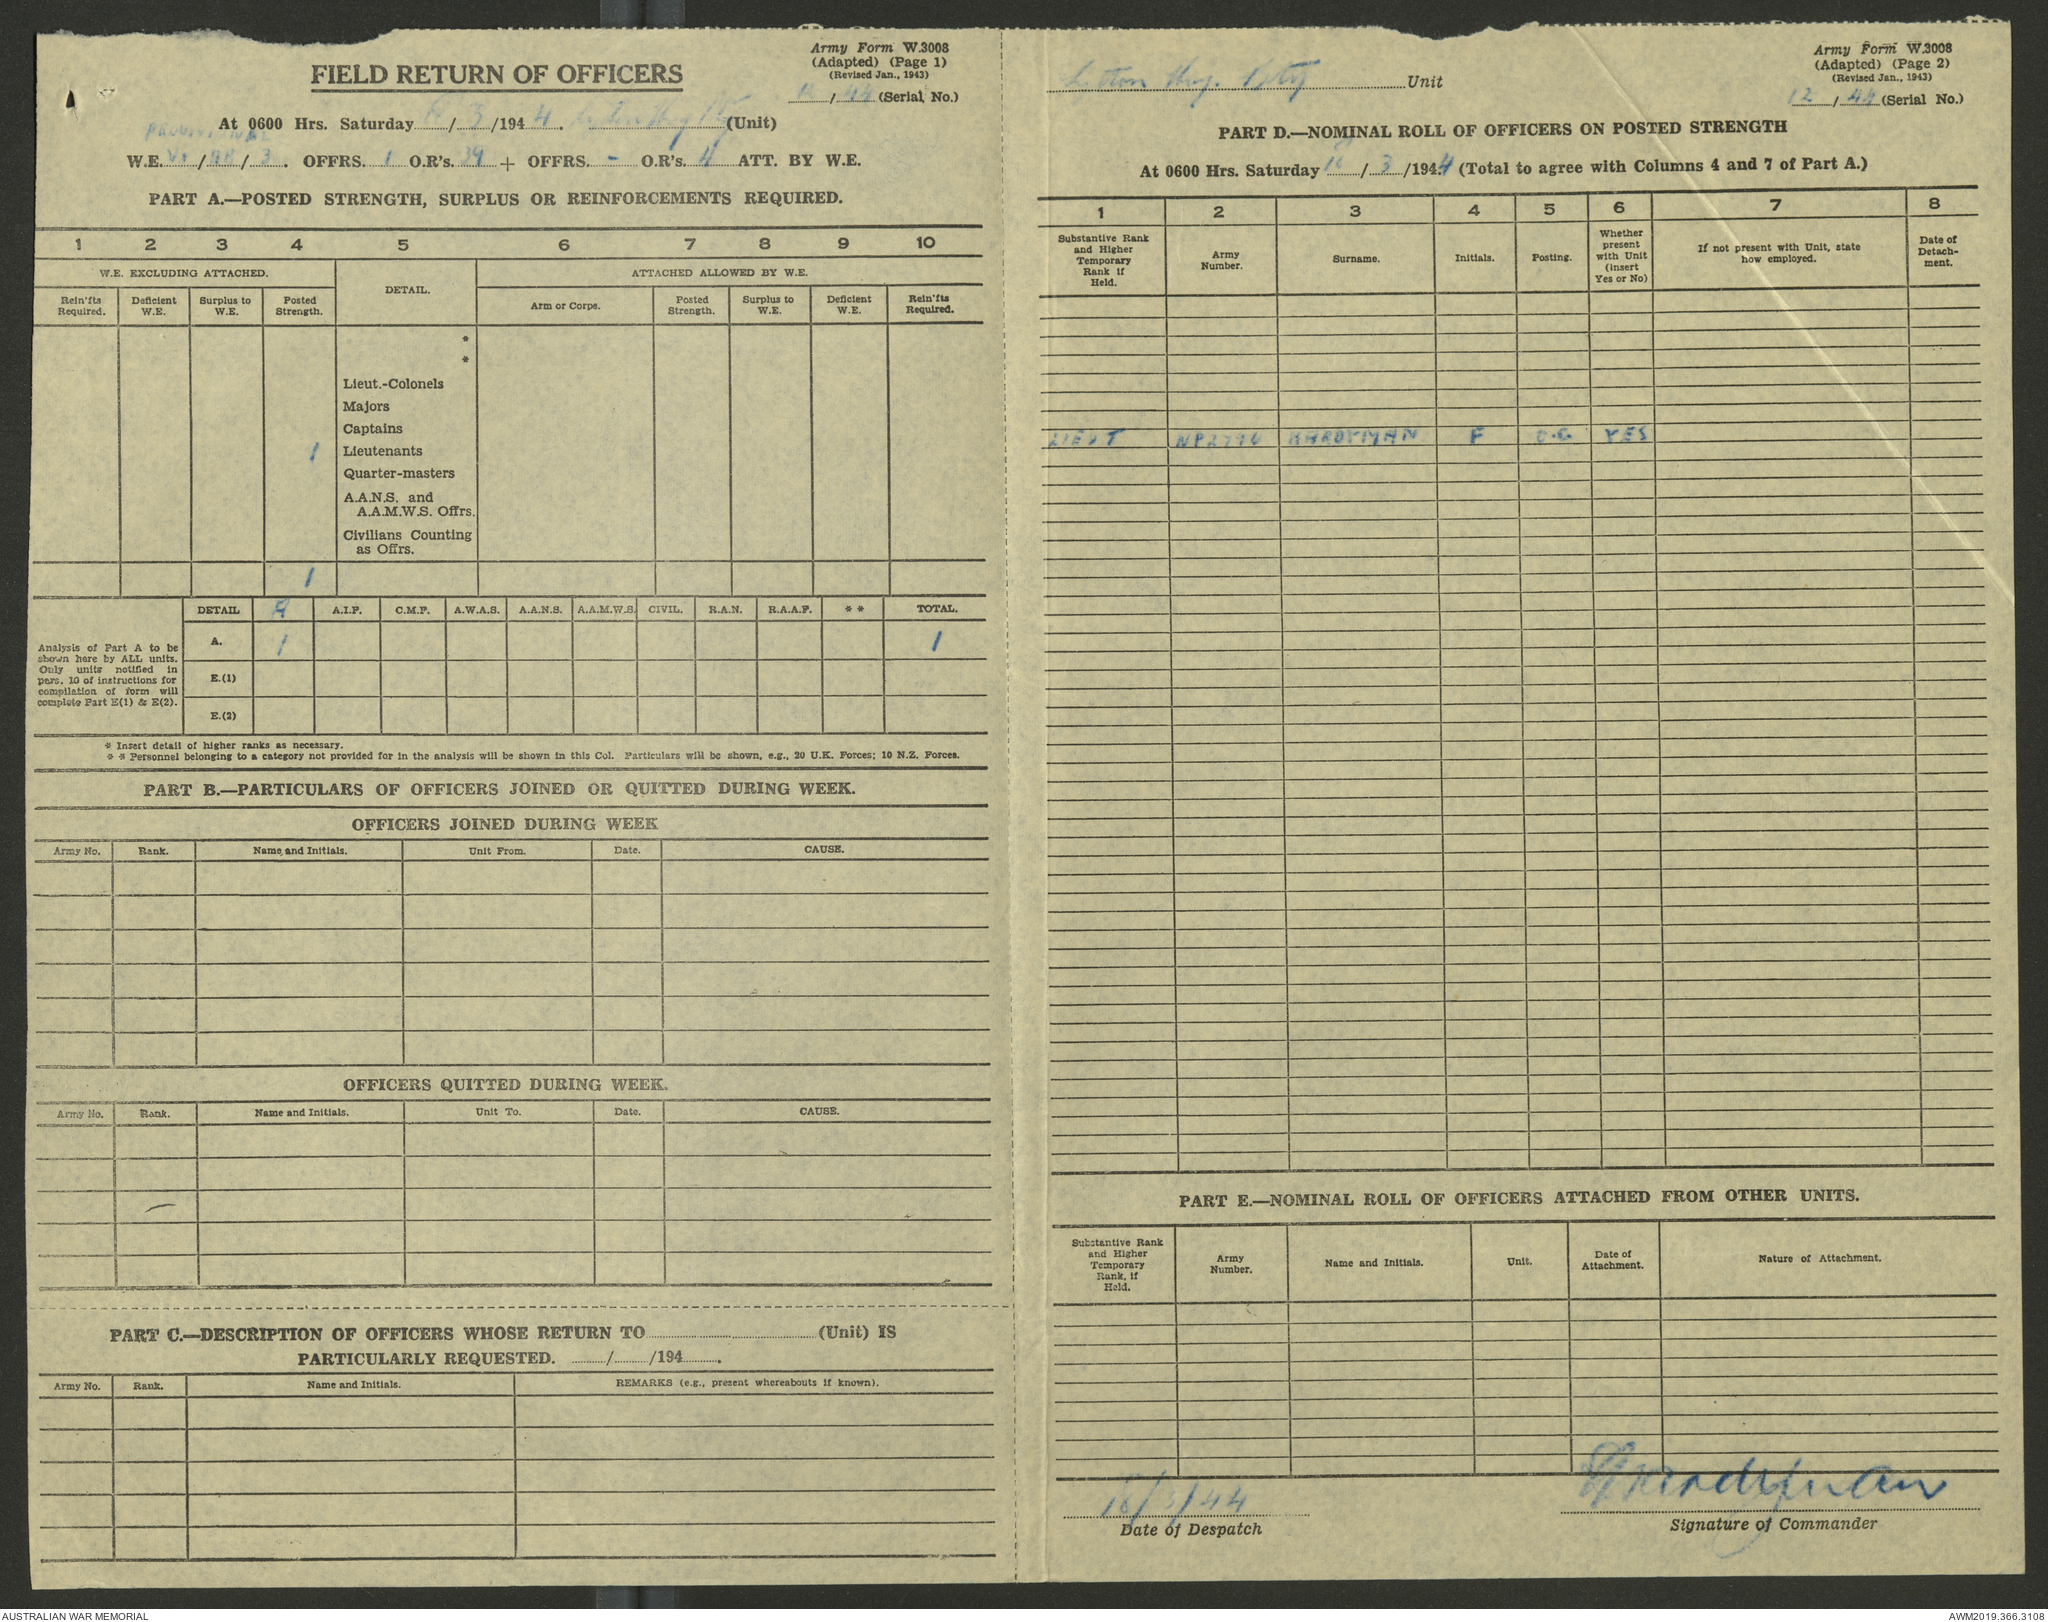 Army Form W.3008
(Adapted) (Page 1)
(Revised Jan., 1943)
12/44 (Serial No.)
FIELD RETURN OF OFFICERS
At 0600 Hrs. Saturday / 3 /194 4. (Unit)
PROVISIONAL
W.E. / / 3. OFFRS. 1 O.R's. 39 + OFFRS. - O.R's. 4 ATT. BY W.E.
PART A.—POSTED STRENGTH, SURPLUS OR REINFORCEMENTS REQUIRED.
1 2 3 4 5 6 7 8 9 10
W.E. EXCLUDING ATTACHED. DETAIL. ATTACHED ALLOWED BY W.E.
Rein'fts Required. Deficient W.E. Surplus to W.E. Posted Strength. Arm or Corps. Posted Strength. Surplus to W.E. Deficient W.E. Rein'fts Required.
*
*
Lieut.-Colonels
Majors
Captains
1 Lieutenants
Quarter-masters
A.A.N.S. and
A.A.M.W.S. Offrs.
Civilians Counting
as Offrs.
1
DETAIL A.I.F. C.M.F. A.W.A.S. A.A.N.S. A.A.M.W.S. CIVIL. R.A.N. R.A.A.F. * * TOTAL.
Analysis of Part A to be
shown here by ALL units.
Only units notified in
para. 10 of instructions for
compilation of form will
complete Part E(1) & E(2).
A. 1 1
E.(1)
E.(2)
* Insert detail of higher ranks as necessary.
* * Personnel belonging to a category not provided for in the analysis will be shown in this Col. Particulars will be shown, e.g., 20 U.K. Forces; 10 N.Z. Forces.
PART B.—PARTICULARS OF OFFICERS JOINED OR QUITTED DURING WEEK.
OFFICERS JOINED DURING WEEK
Army No. Rank. Name and Initials. Unit From. Date. CAUSE.
OFFICERS QUITTED DURING WEEK.
Army No. Rank. Name and Initials. Unit To. Date. CAUSE.
PART C.—DESCRIPTION OF OFFICERS WHOSE RETURN TO (Unit) IS
PARTICULARLY REQUESTED. / /194 .
Army No. Rank. Name and Initials. REMARKS (e.g., present whereabouts if known).
Army Form W.3008
(Adapted) (Page 2)
(Revised Jan., 1943)
12/44 (Serial No.)
Lytton Unit
PART D.—NOMINAL ROLL OF OFFICERS ON POSTED STRENGTH
At 0600 Hrs. Saturday 18/3/1944 (Total to agree with Columns 4 and 7 of Part A.)
1 2 3 4 5 6 7 8
Substantive Rank and Higher Temporary Rank if Held. Army Number. Surname. Initials. Posting. Whether present with Unit (insert Yes or No) If not present with Unit, state how employed. Date of Detach-ment.
LIEUT HARDYMAN F O.C. YES
PART E.—NOMINAL ROLL OF OFFICERS ATTACHED FROM OTHER UNITS.
Substantive Rank and Higher Temporary Rank, if Held. Army Number. Name and Initials. Unit. Date of Attachment. Nature of Attachment.
18/3/44
Date of Despatch
F Hardyman
Signature of Commander
AUSTRALIAN WAR MEMORIAL
AWM2019.366.3108